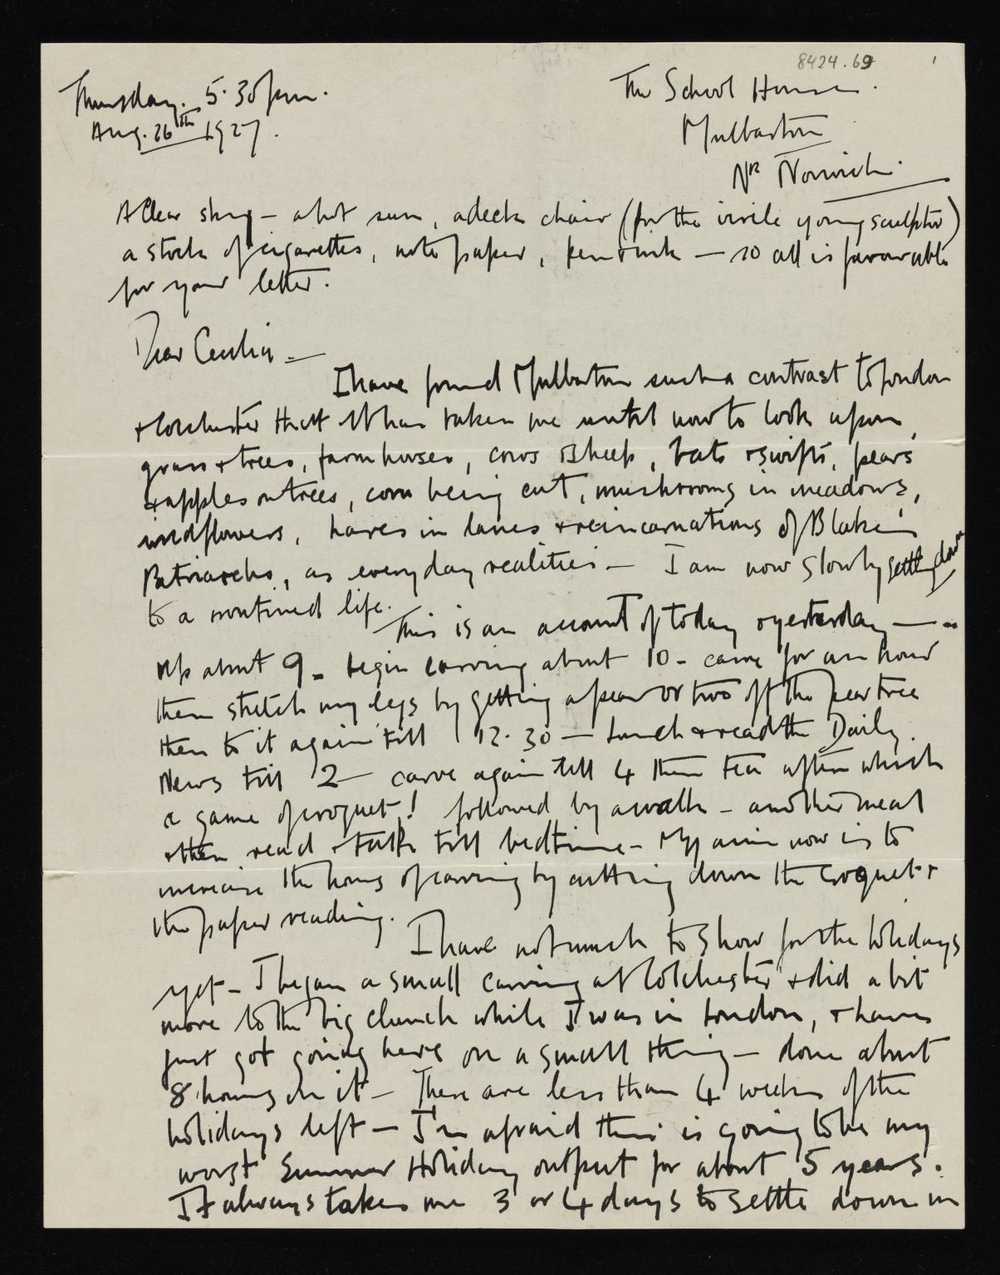 8424.69
1
Thursday. 5.30 pm.
Aug. 26th 1927.
The School House.
Mulbarton
Nr Norwich.
A Clear sky – a hot sun, a deck chair (for the virile young sculptor)
a stock of cigarettes, note paper, pen & ink – so all is favourable
for your letter.
Dear Cecilia –
I have found Mulbarton such a contrast to London
& Colchester that it has taken me until now to look upon,
grass & trees, farmhouses, cows & sheep, bats & swifts, pears
& apples on trees, corn being cut, mushrooms in meadows,
wildflowers, hares in lanes & reincarnations of Blake's
Patriarchs, as everyday realities – I am now slowly settling down
to a routined life.
This is an account of today & yesterday –
Up about 9 – begin carving about 10 – carve for an hour
then stretch my legs by getting a pear or two off the pear tree
then to it again till 12.30 – Lunch & read the Daily
News till 2 – carve again till 4 then tea after which
a game of croquet! followed by a walk – another meal
& then read & talk till bedtime – My aim now is to
increase the hours of carving by cutting down the croquet &
the paper reading.
I have not much to show for the holidays
yet – I began a small carving at Colchester & did a bit
more to the big clunch while I was in London, & have
just got going here on a small thing – done about
8 hours on it – There are less than 4 weeks of the
holidays left – I'm afraid this is going to be my
worst Summer Holiday output for about 5 years.
It always takes me 3 or 4 days to settle down in